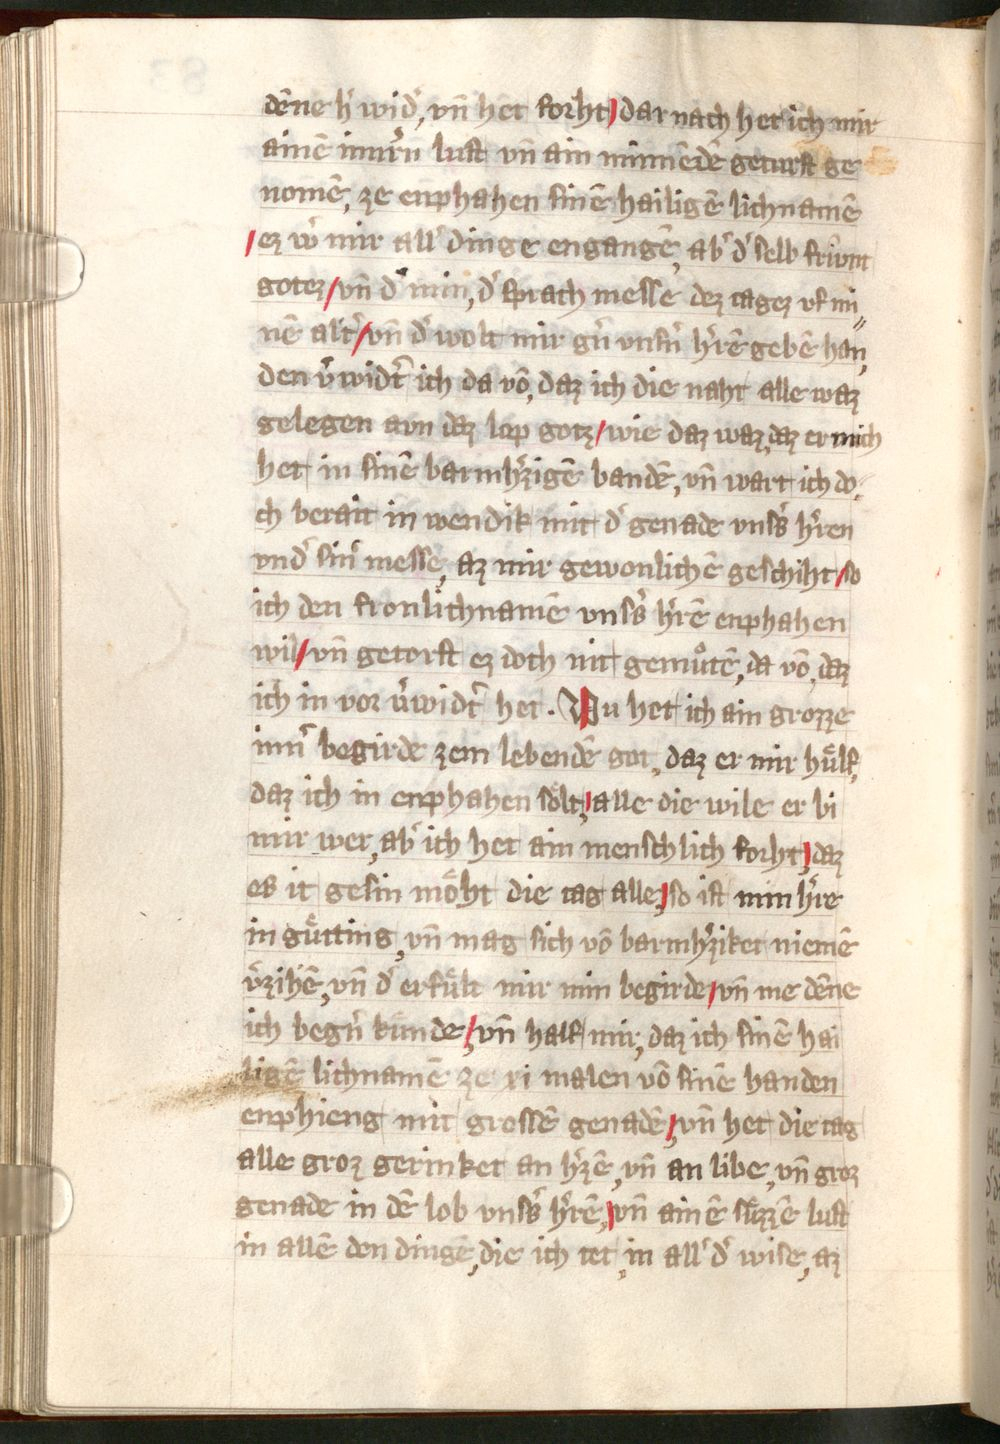 dēne h' wid', vn̄ het forht / dar nach het ich mir
ainē inn'rn lust vn̄ ain minnēdē geturst ge
nomē, ze enphahen sinē hailigē lichnamē
/ ez w' mir all' dinge engangē, ab' d' selb friunt
gotez / vn̄ d' min, d' sprach messe dez tagez vf mi„
nē alt' / vn̄ d' wolt mir g'n vnsn' h'rē gebē han,
den v'widt' ich da vō, daz ich die naht alle waz
gelegen avn daz lop gotz / wie daz waz, daz er mich
het in sinē barmh'zigē bandē, vn̄ wart ich do„
ch berait in wendik mit d' genade vnss' h'ren
vnd' sin' messe, az mir gewonlichē geschiht / so
ich den fronlichnamē vnss' h'rē enphahen
wil / vn̄ getorst ez doch nit gemůtē, da vō, daz
ich in vor v'widt' het. Nu het ich ain grozze
inn' begirde zem lebendē got, daz er mir hůlf,
daz ich in enphahen sőlt, / alle die wile er bi
mir wer, ab' ich het ain menschlich forht, / daz
es it gesin mőht die tag alle, / so ist min h're
in gůtting, vn̄ mag sich vō barmh'ziket niemē
v'zihē, vn̄ d' erfůlt mir min begirde / vn̄ me dēne
ich beg'n kunde, / vn̄ half mir, daz ich sinē hai
ligē lichnamē ze xi malen vō sinē handen
enphieng mit grossē genadē, / vn̄ het die tag
alle groz gerinket an h'zē, vn̄ an libe, vn̄ groz
genade in dē lob vnss' h'rē, / vn̄ ainē sůzzē lust
in allē den dingē, die ich tet, in all' d' wise, az